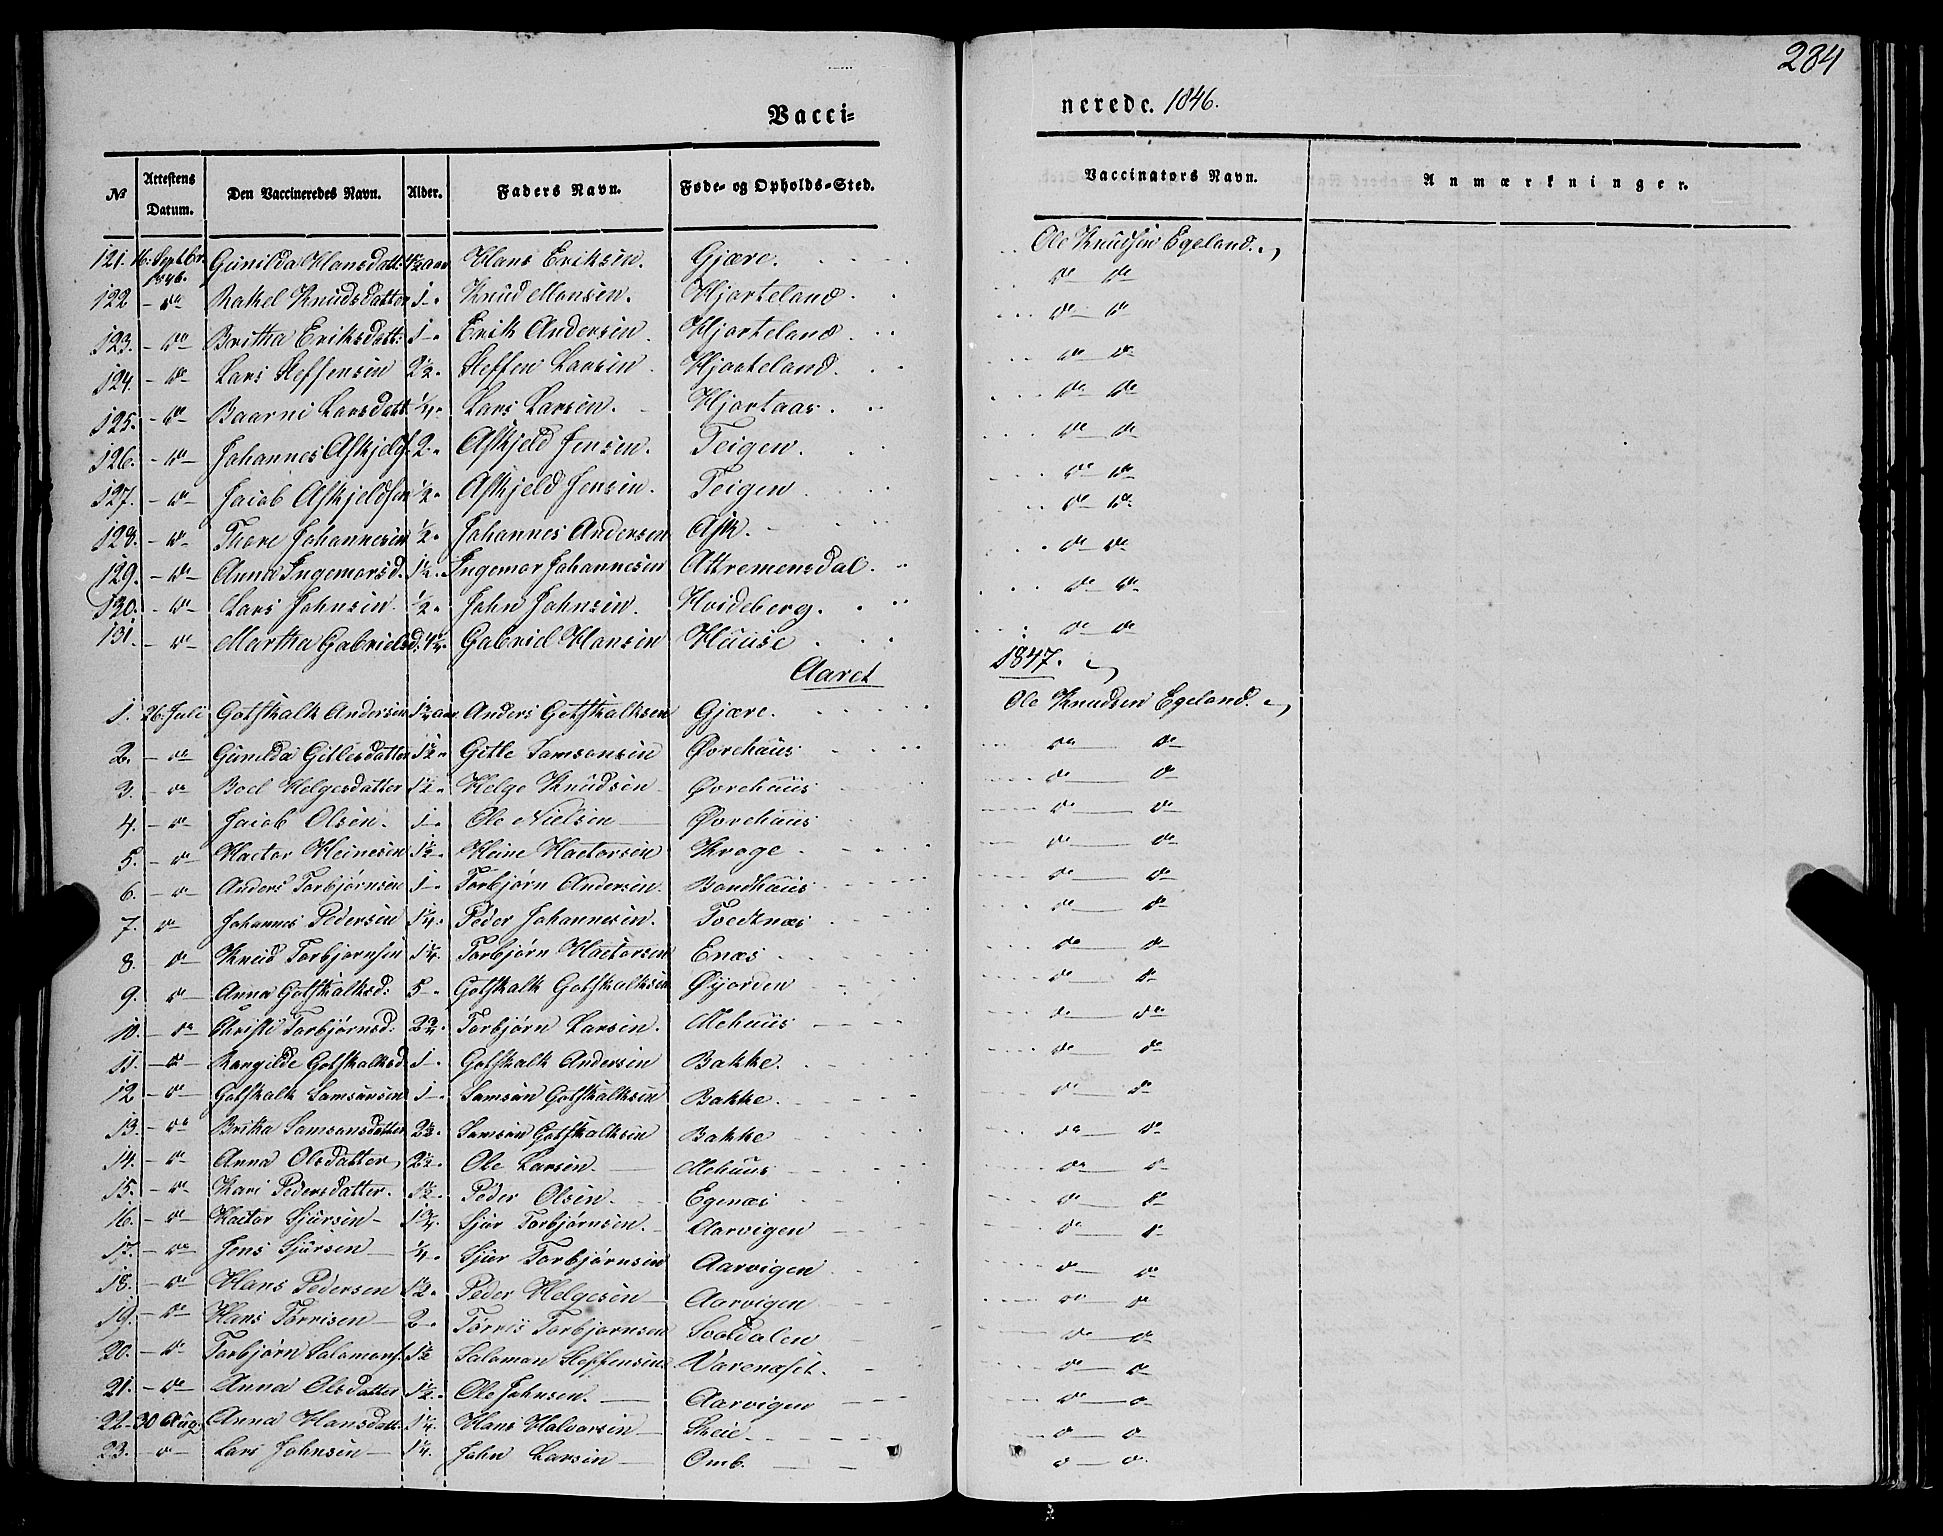 284
Vacci=
nerede. 1846.
No
Attestens Datum.
Den Vaccineredes Navn.
Alder.
Faders Navn.
Føde- og Opholds-Sted.
Vaccinators Navn.
Anmærkninger.
121. 16. Septbr. 1846. Gunilda Hansdatt: 4½ aar Hans Eriksen. Gjære. Ole Knudsen Egeland.
122 - do Rakel Knudsdatter 1 - Knud Monsen. Hjorteland. do do
123. - do Britha Eriksdatt: 1 - Erik Andersen. Hjorteland. do do
124. - do Lars Steffensen 2½. Steffen Larsen. Hjorteland. do do
125. - do Baarni Larsdatt ¼. Lars Larsen. Hjortaas. do do
126. - do Johannes Askjelds. 2. Askjeld Jensen. Teigen. do do
127. - do Jacob Askjeldsen ½. Askjeld Jensen. Teigen. do do
128. - do Tore Johannesen ½. Johannes Andersen Ask. do do
129. - do Anna Ingemarsd. 1½. Ingemar Johannesen Attremensdal. do do
130. - do Lars Johnsen. ½. John Johnsen. Hvideberg. do do
131. - do Martha Gabrielsd: Gabriel Hansen Huuse do do
Aaret 1847.
1. 26. Juli Gotskalk Andersen aar. Anders Gotskalksen Gjære. Ole Knudsen Egeland.
2. - do Gunilda Gitlesdatter 1½. Gitle Samsonsen Øvrehuus do do
3. - do Boel Helgesdatter 1½. Helge Knudsen Øvrehuus do do
4. - do Jacob Olsen. 1 - Ole Nielsen Øvrehuus do do
5. - do Hactor Heinesen 1½. Heine Hactorsen Krage do do
6. - do Anders Torbjørnsen 1 - Torbjørn Andersen. Bondhuus do do
7. do Johannes Pedersen 1¼. Peder Johannesen. Tvedtnæs do do
8. do Knud Torbjørnsen 1¼. Torbjørn Hactorsen Enæs do do
9. - do Anna Gotskalksd: 5 - Gotskalk Gotskalksen Øyjorden do do
10. - do Christi Torbjørnsd: 2¾. Torbjørn Larsen. Mehuus do do
11. - do Rangilde Gotskalksd 1 - Gotskalk Andersen Bakke. do do
12 - do Gotskalk Samsonsen 1 - Samson Gotskalksen Bakke. do do
13. - do Britha Samsonsdatter Samson Gotskalksen Bakke do do
14. - do Anna Olsdatter, 2½. Ole Larsen. Mehuus do do
15. - do Kari Pedersdatter. 1½. Peder Olsen. Egenæs do do
16. - do Hactor Sjursen - 1¾. Sjur Torbjørnsen. Aarvigen do do
17. - do Jens Sjursen ¼. Sjur Torbjørnsen Aarvigen do do
18. - do Hans Pedersen 1½. Peder Helgesen Aarvigen do do
19. - do Hans Tørrisen 2. Tørris Torbjørnsen Sooldalen do do
20. - do Torbjørn Salomons. 1½ Salomon Steffensen Varenaset. do do
21. - do Anna Olsdatter 1½. Ole Johnsen. Aarvigen do do
22. 30 Aug. Anna Hansdatt: 1¼. Hans Halvorsen Skeie. do do
23. - do Lars Johnsen 1¼. John Larsen Omb. do do